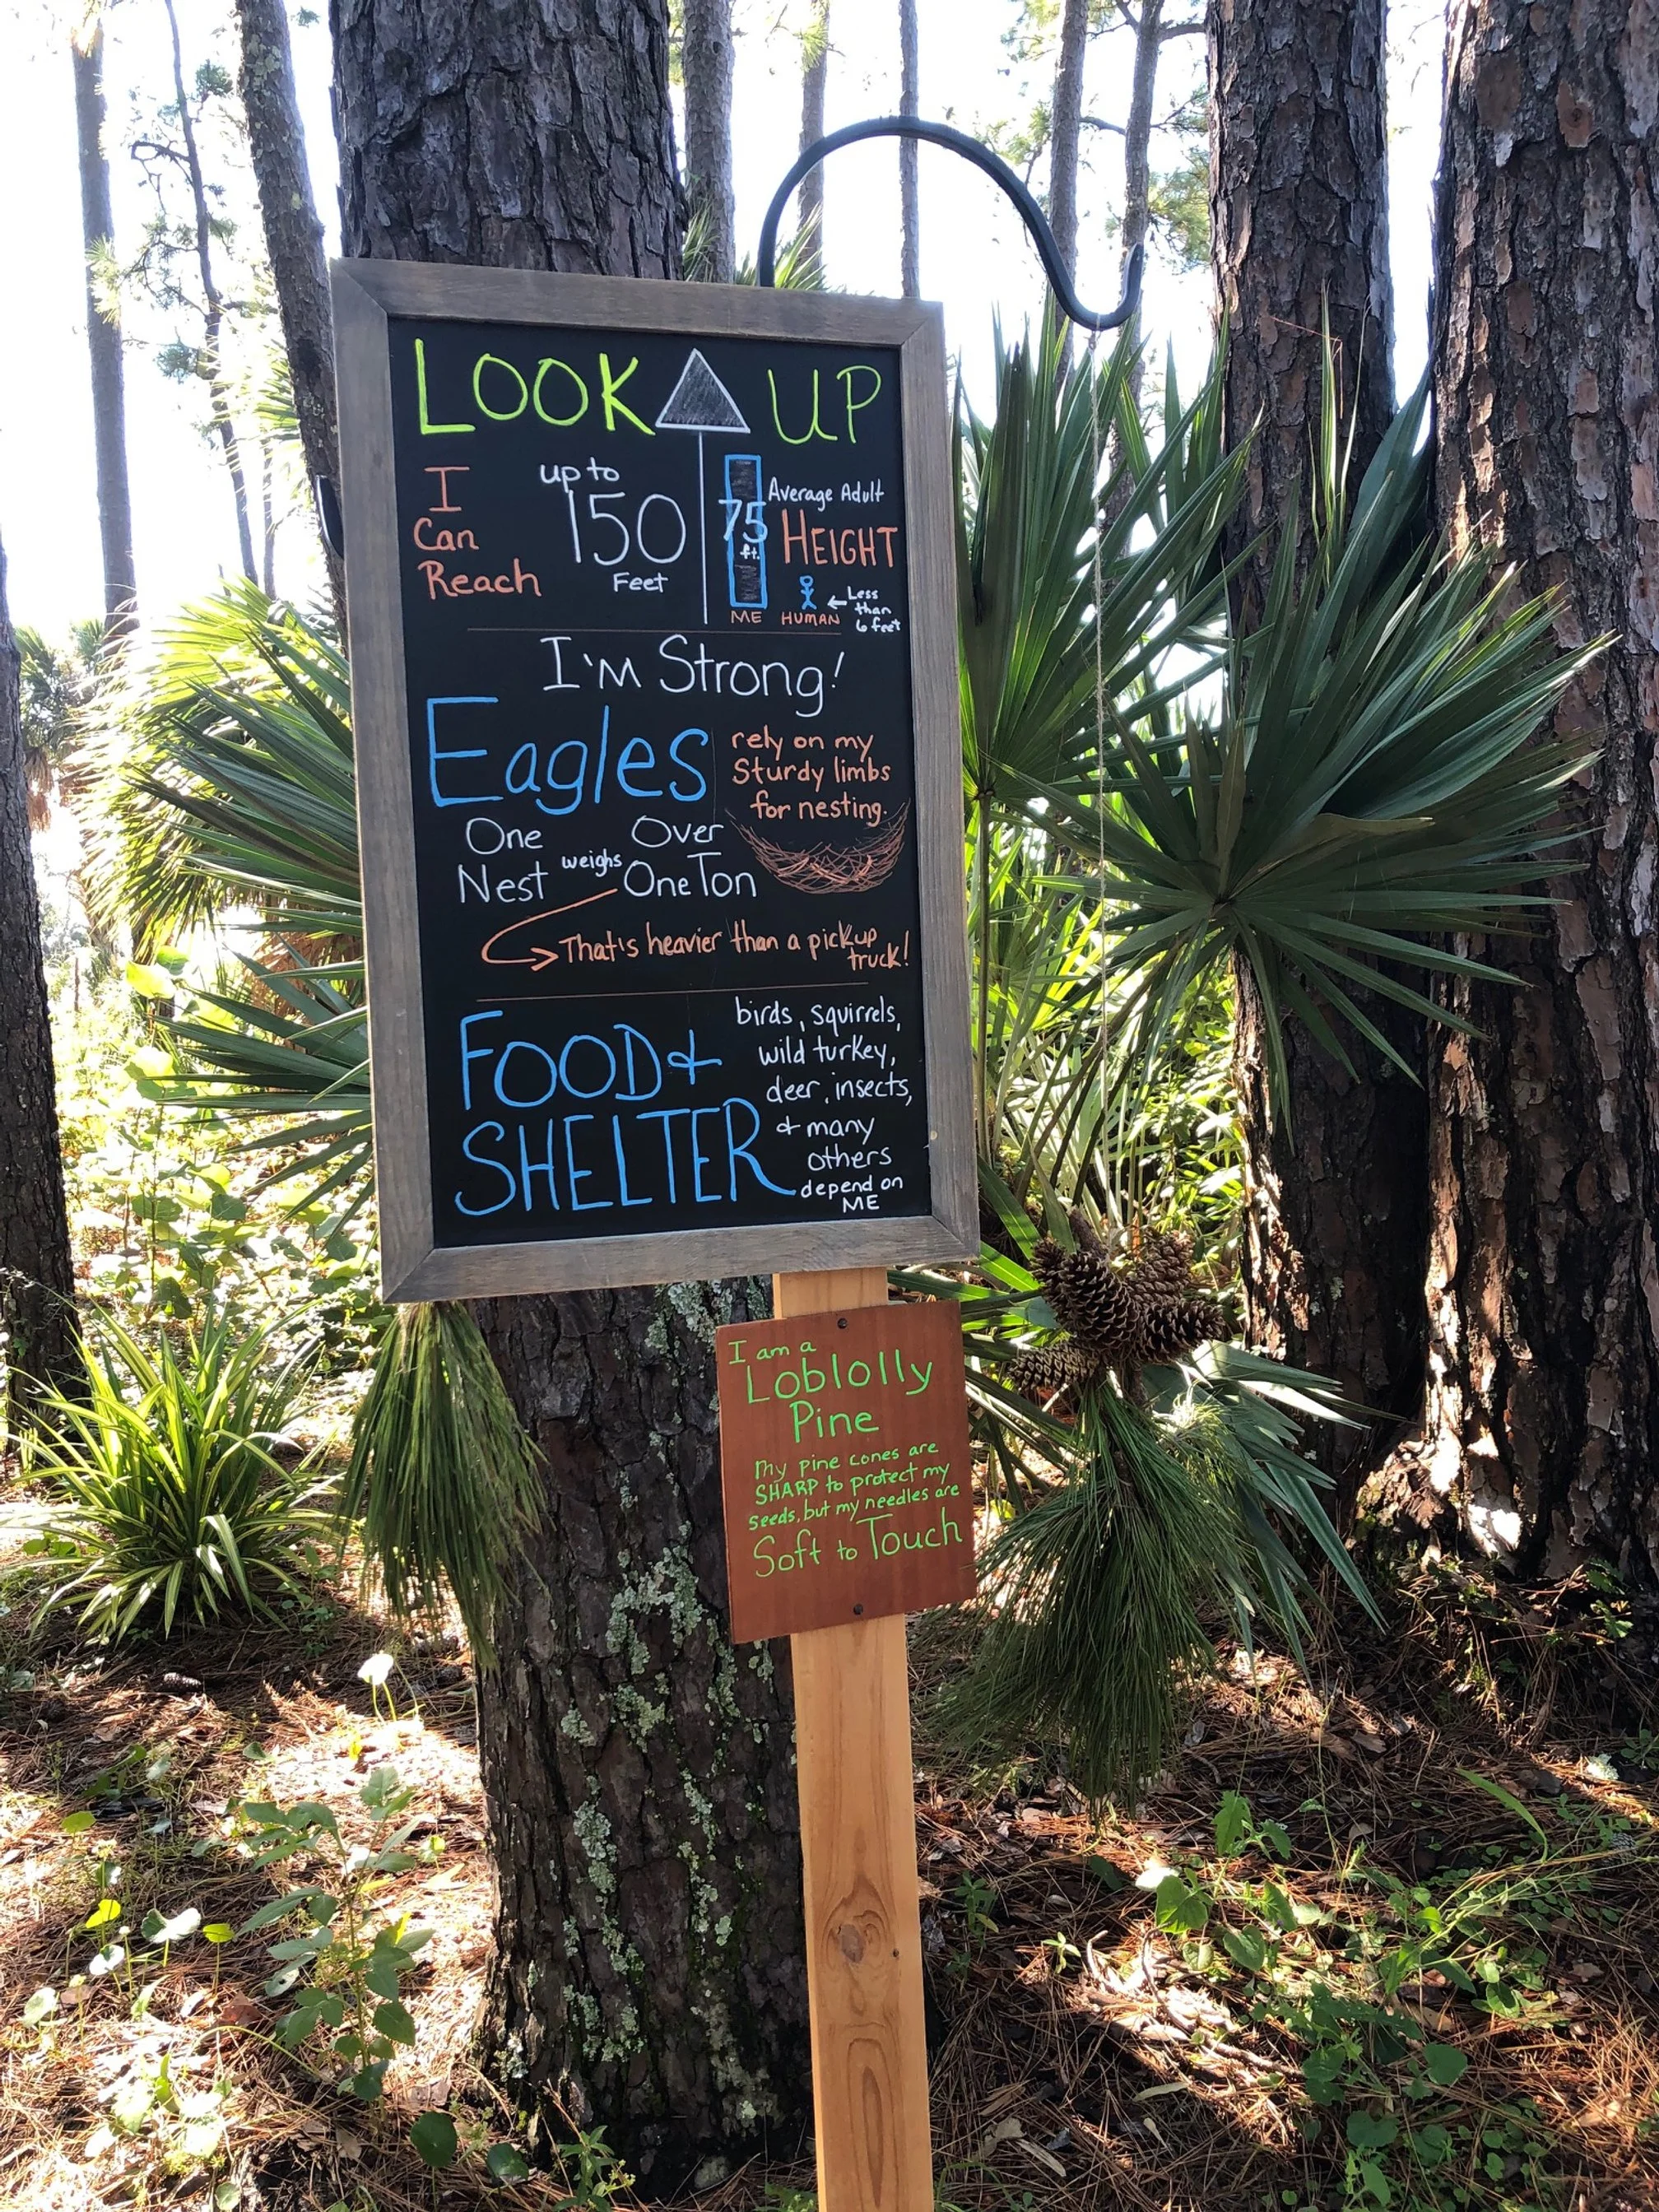 LOOK UP
I Can Reach
up to
150
Feet
75
ft.
ME
Average Adult
HEIGHT
HUMAN
Less
than
6 feet
I'm Strong!
Eagles
rely on my
Sturdy limbs
for nesting.
One Nest weighs Over One Ton
That's heavier than a pickup
truck!
FOOD &
SHELTER
birds, squirrels,
wild turkey,
deer, insects,
& many
others
depend on
ME
I am a
Loblolly
Pine
My pine cones are
SHARP to protect my
seeds, but my needles are
Soft to Touch